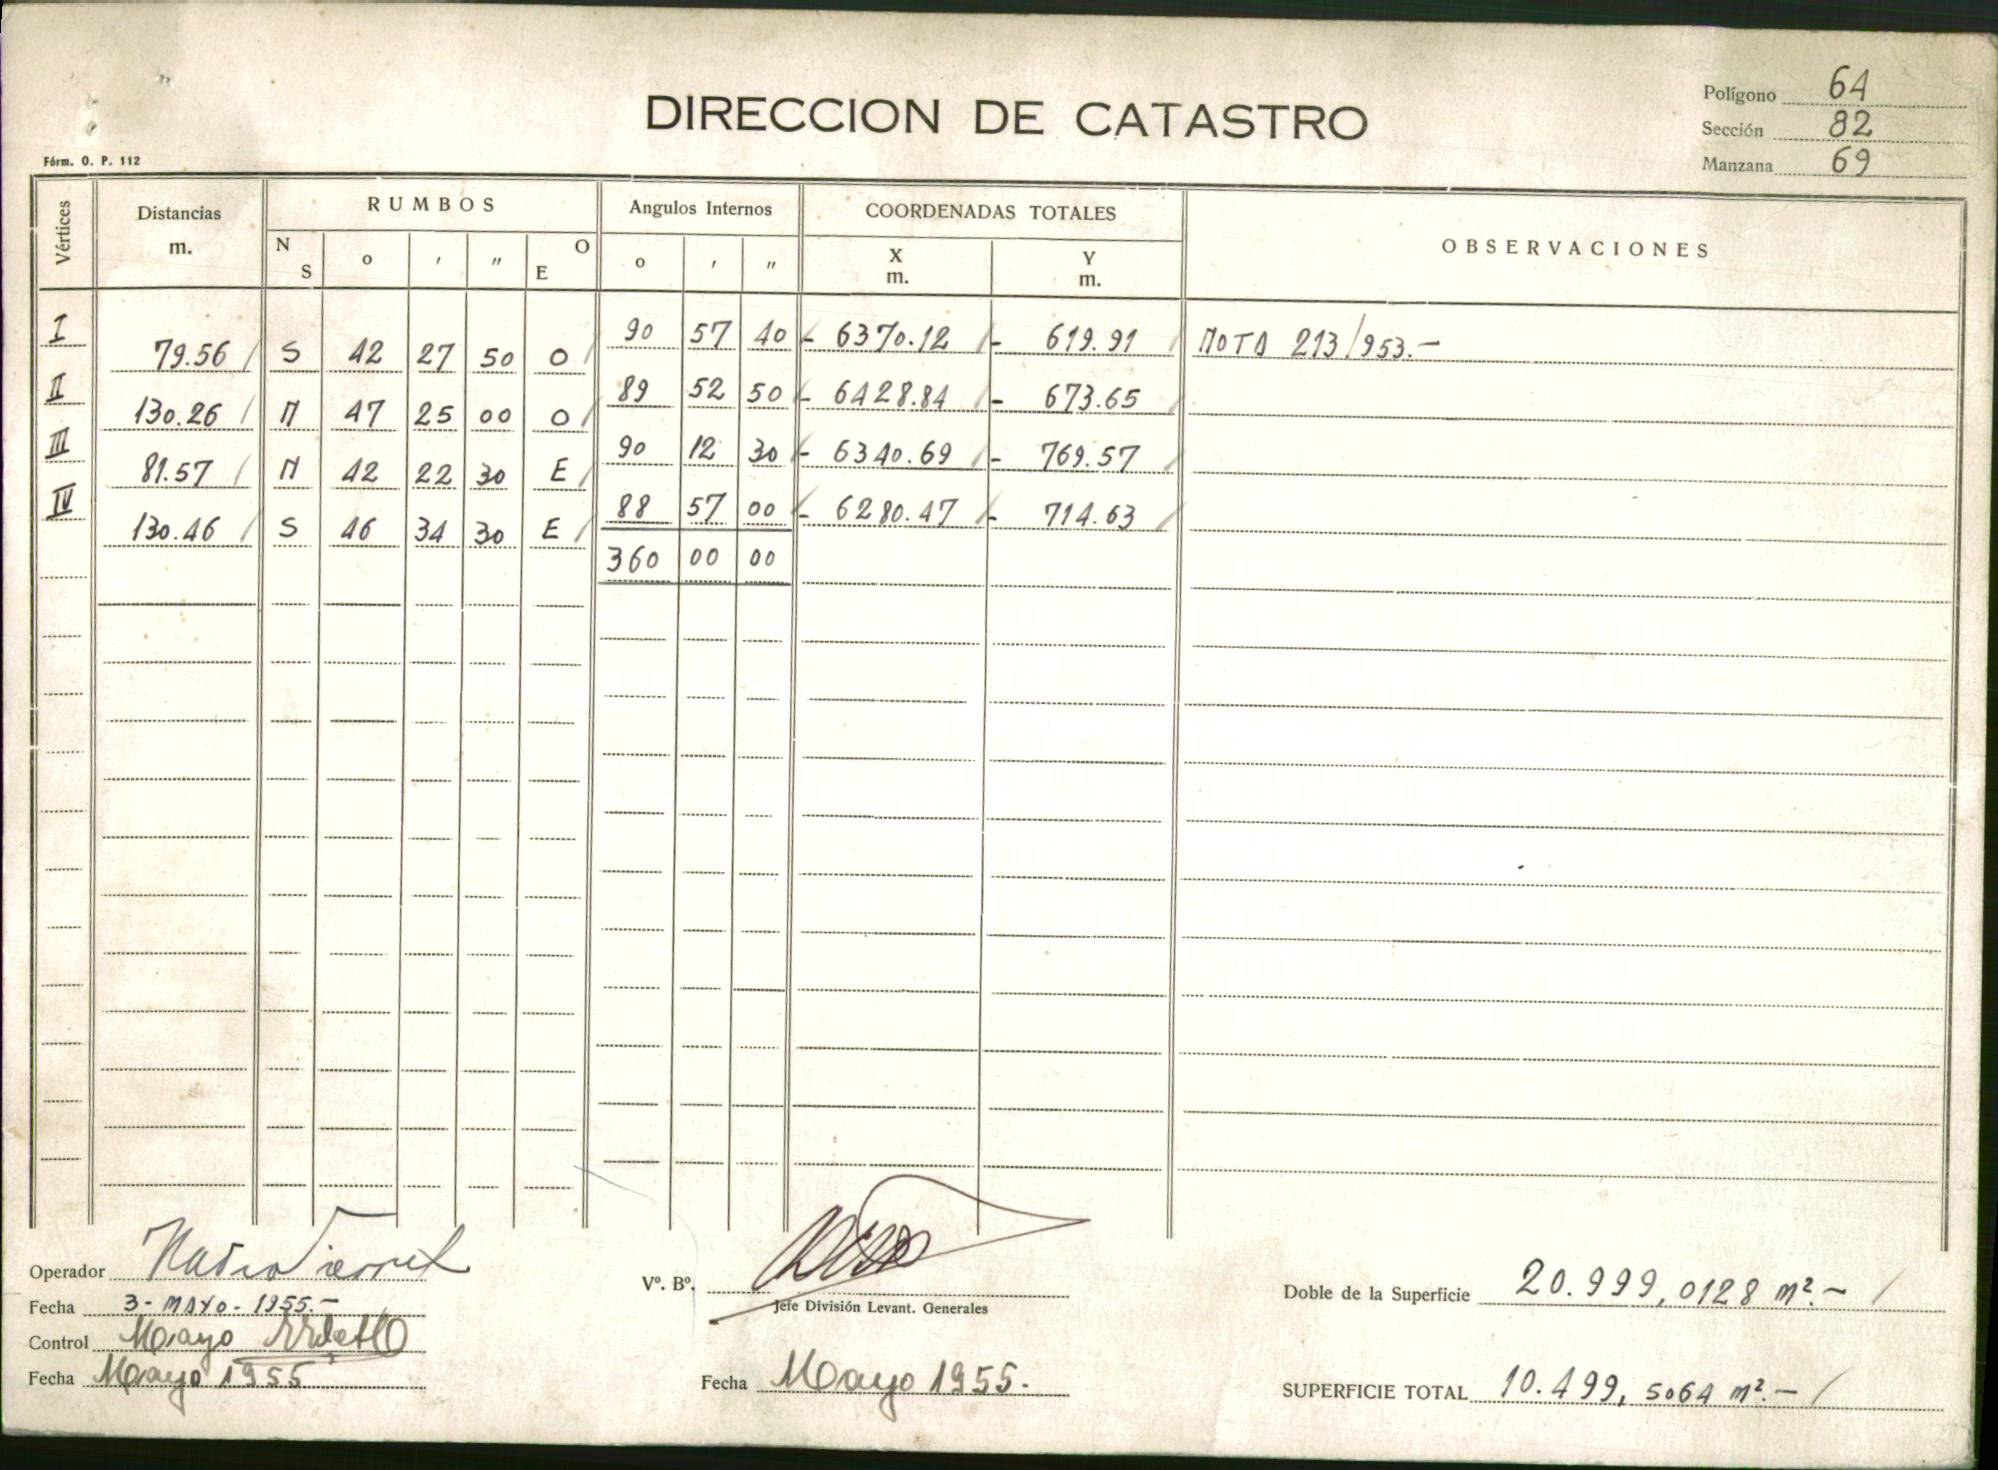 DIRECCION DE CATASTRO
Polígono 64
Sección 82
Manzana 69
Fórm. O. P. 112
Vértices Distancias m. RUMBOS N S o ' " O E Angulos Internos o ' " COORDENADAS TOTALES X m. Y m. OBSERVACIONES
I 90 57 40 - 6370.12 - 619.91 NOTA 213/953.-
79.56 S 42 27 50 O
II 89 52 50 - 6428.84 - 673.65
130.26 N 47 25 00 O
III 90 12 30 - 6340.69 - 769.57
81.57 N 42 22 30 E
IV 88 57 00 - 6280.47 - 714.63
130.46 S 46 34 30 E
360 00 00
Operador
Fecha 3-MAYO-1955.-
Control Mayo
Fecha Mayo 1955
Vº. Bº.
Jefe División Levant. Generales
Fecha Mayo 1955.
Doble de la Superficie 20.999,0128 m².-
SUPERFICIE TOTAL 10.499,5064 m².-